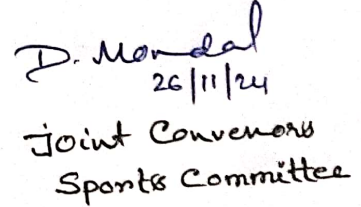 D. Mondal
26/11/24
Joint Convenors
Sports Committee